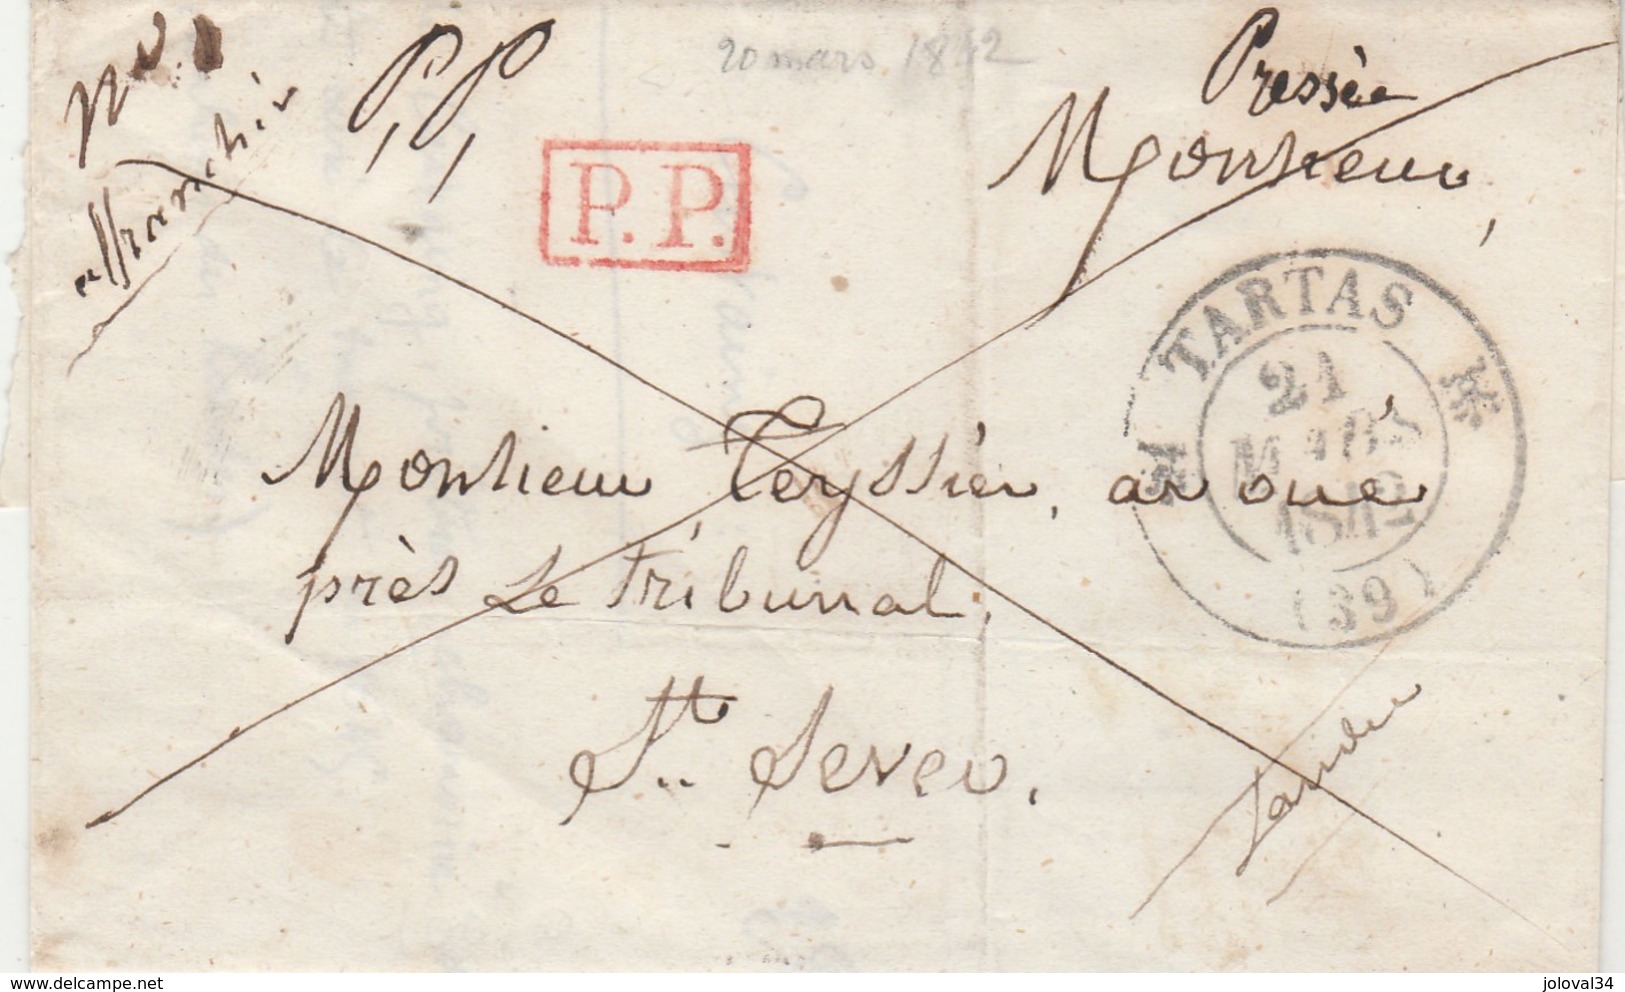 n° 1
affranchie
P, P,
20 mars 1842
Pressée
Monsieur,
P.P.
TARTAS
21
MARS
1842
(39)
Monsieur Teyssier, avoué
près Le Tribunal,
St. Sever.
Landes
www.delcampe.net
joloval34